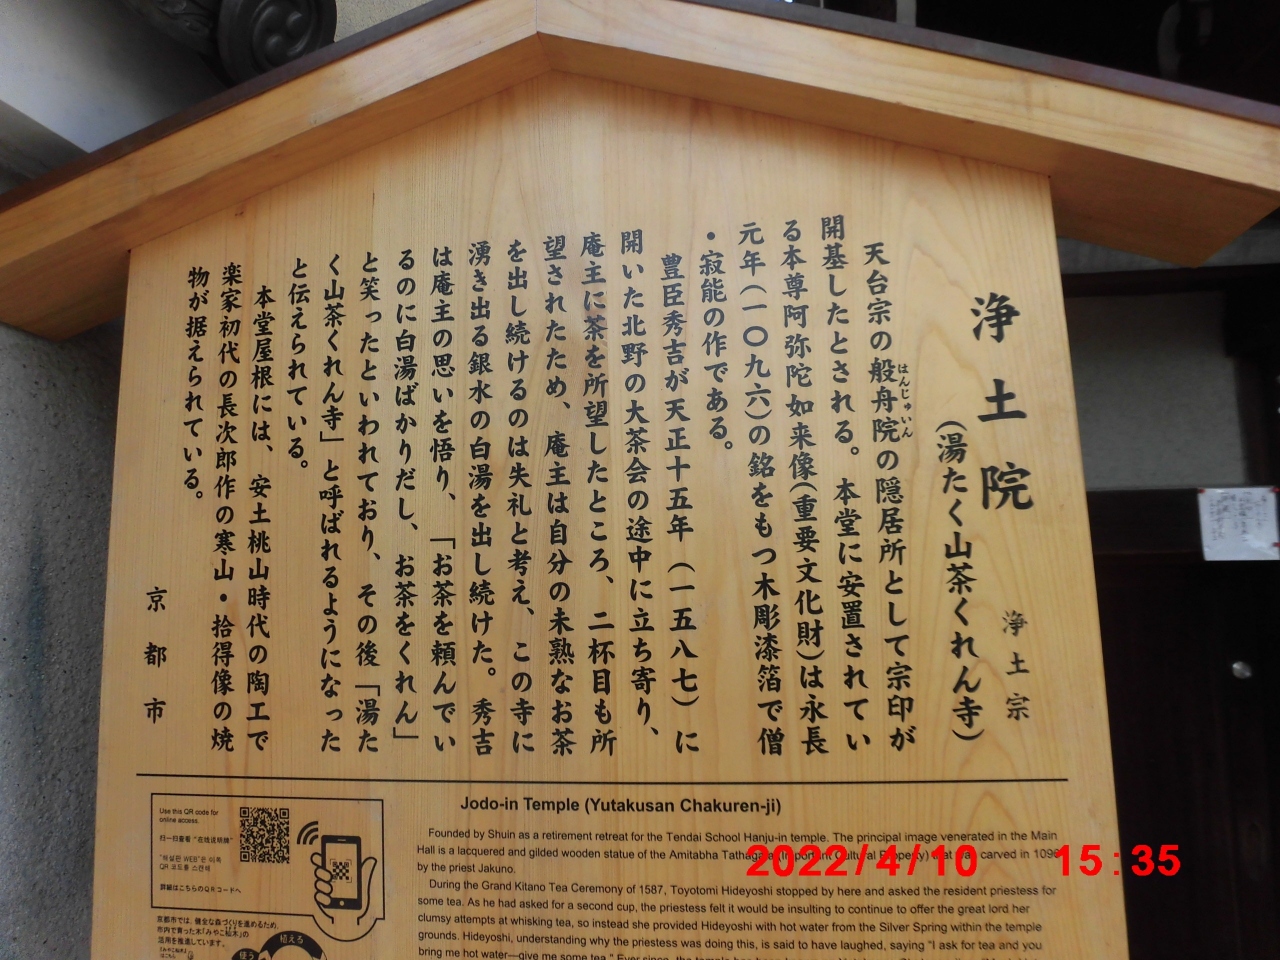 浄土院
浄土宗
（湯たく山茶くれん寺）
天台宗の般舟院の隠居所として宗印が
はんじゅいん
開基したとされる。本堂に安置されてい
る本尊阿弥陀如来像（重要文化財）は永長
元年（一〇九六）の銘をもつ木彫漆箔で僧
・寂能の作である。
豊臣秀吉が天正十五年（一五八七）に
開いた北野の大茶会の途中に立ち寄り、
庵主に茶を所望したところ、二杯目も所
望されたため、庵主は自分の未熟なお茶
を出し続けるのは失礼と考え、この寺に
湧き出る銀水の白湯を出し続けた。秀吉
は庵主の思いを悟り、「お茶を頼んでい
るのに白湯ばかりだし、お茶をくれん」
と笑ったといわれており、その後「湯た
く山茶くれん寺」と呼ばれるようになった
と伝えられている。
本堂屋根には、安土桃山時代の陶工で
楽家初代の長次郎作の寒山・拾得像の焼
物が据えられている。
京都市
Jodo-in Temple (Yutakusan Chakuren-ji)
Founded by Shuin as a retirement retreat for the Tendai School Hanju-in temple. The principal image venerated in the Main
Hall is a lacquered and gilded wooden statue of the Amitabha Tathagata (Important Cultural Property) that was carved in 1096
by the priest Jakuno.
During the Grand Kitano Tea Ceremony of 1587, Toyotomi Hideyoshi stopped by here and asked the resident priestess for
some tea. As he had asked for a second cup, the priestess felt it would be insulting to continue to offer the great lord her
clumsy attempts at whisking tea, so instead she provided Hideyoshi with hot water from the Silver Spring within the temple
grounds. Hideyoshi, understanding why the priestess was doing this, is said to have laughed, saying "I ask for tea and you
bring me hot water—give me some tea." Ever since, the temple has been
Use this QR code for
online access.
扫一扫查看 "在线说明牌"
"해설판 WEB"은 이쪽
QR 코드를 스캔해
詳細はこちらのQRコードへ
京都市では、健全な森づくりを進めるため、
市内で育った木「みやこ杣木」の
活用を推進しています。
植える
使う
2022/4/10 15:35